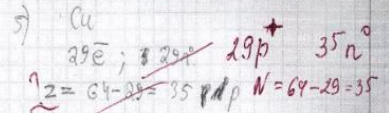 5) Cu
29ē ; 29n° 29p⁺ 35n⁰
z = 64-29=35 p N = 64-29=35